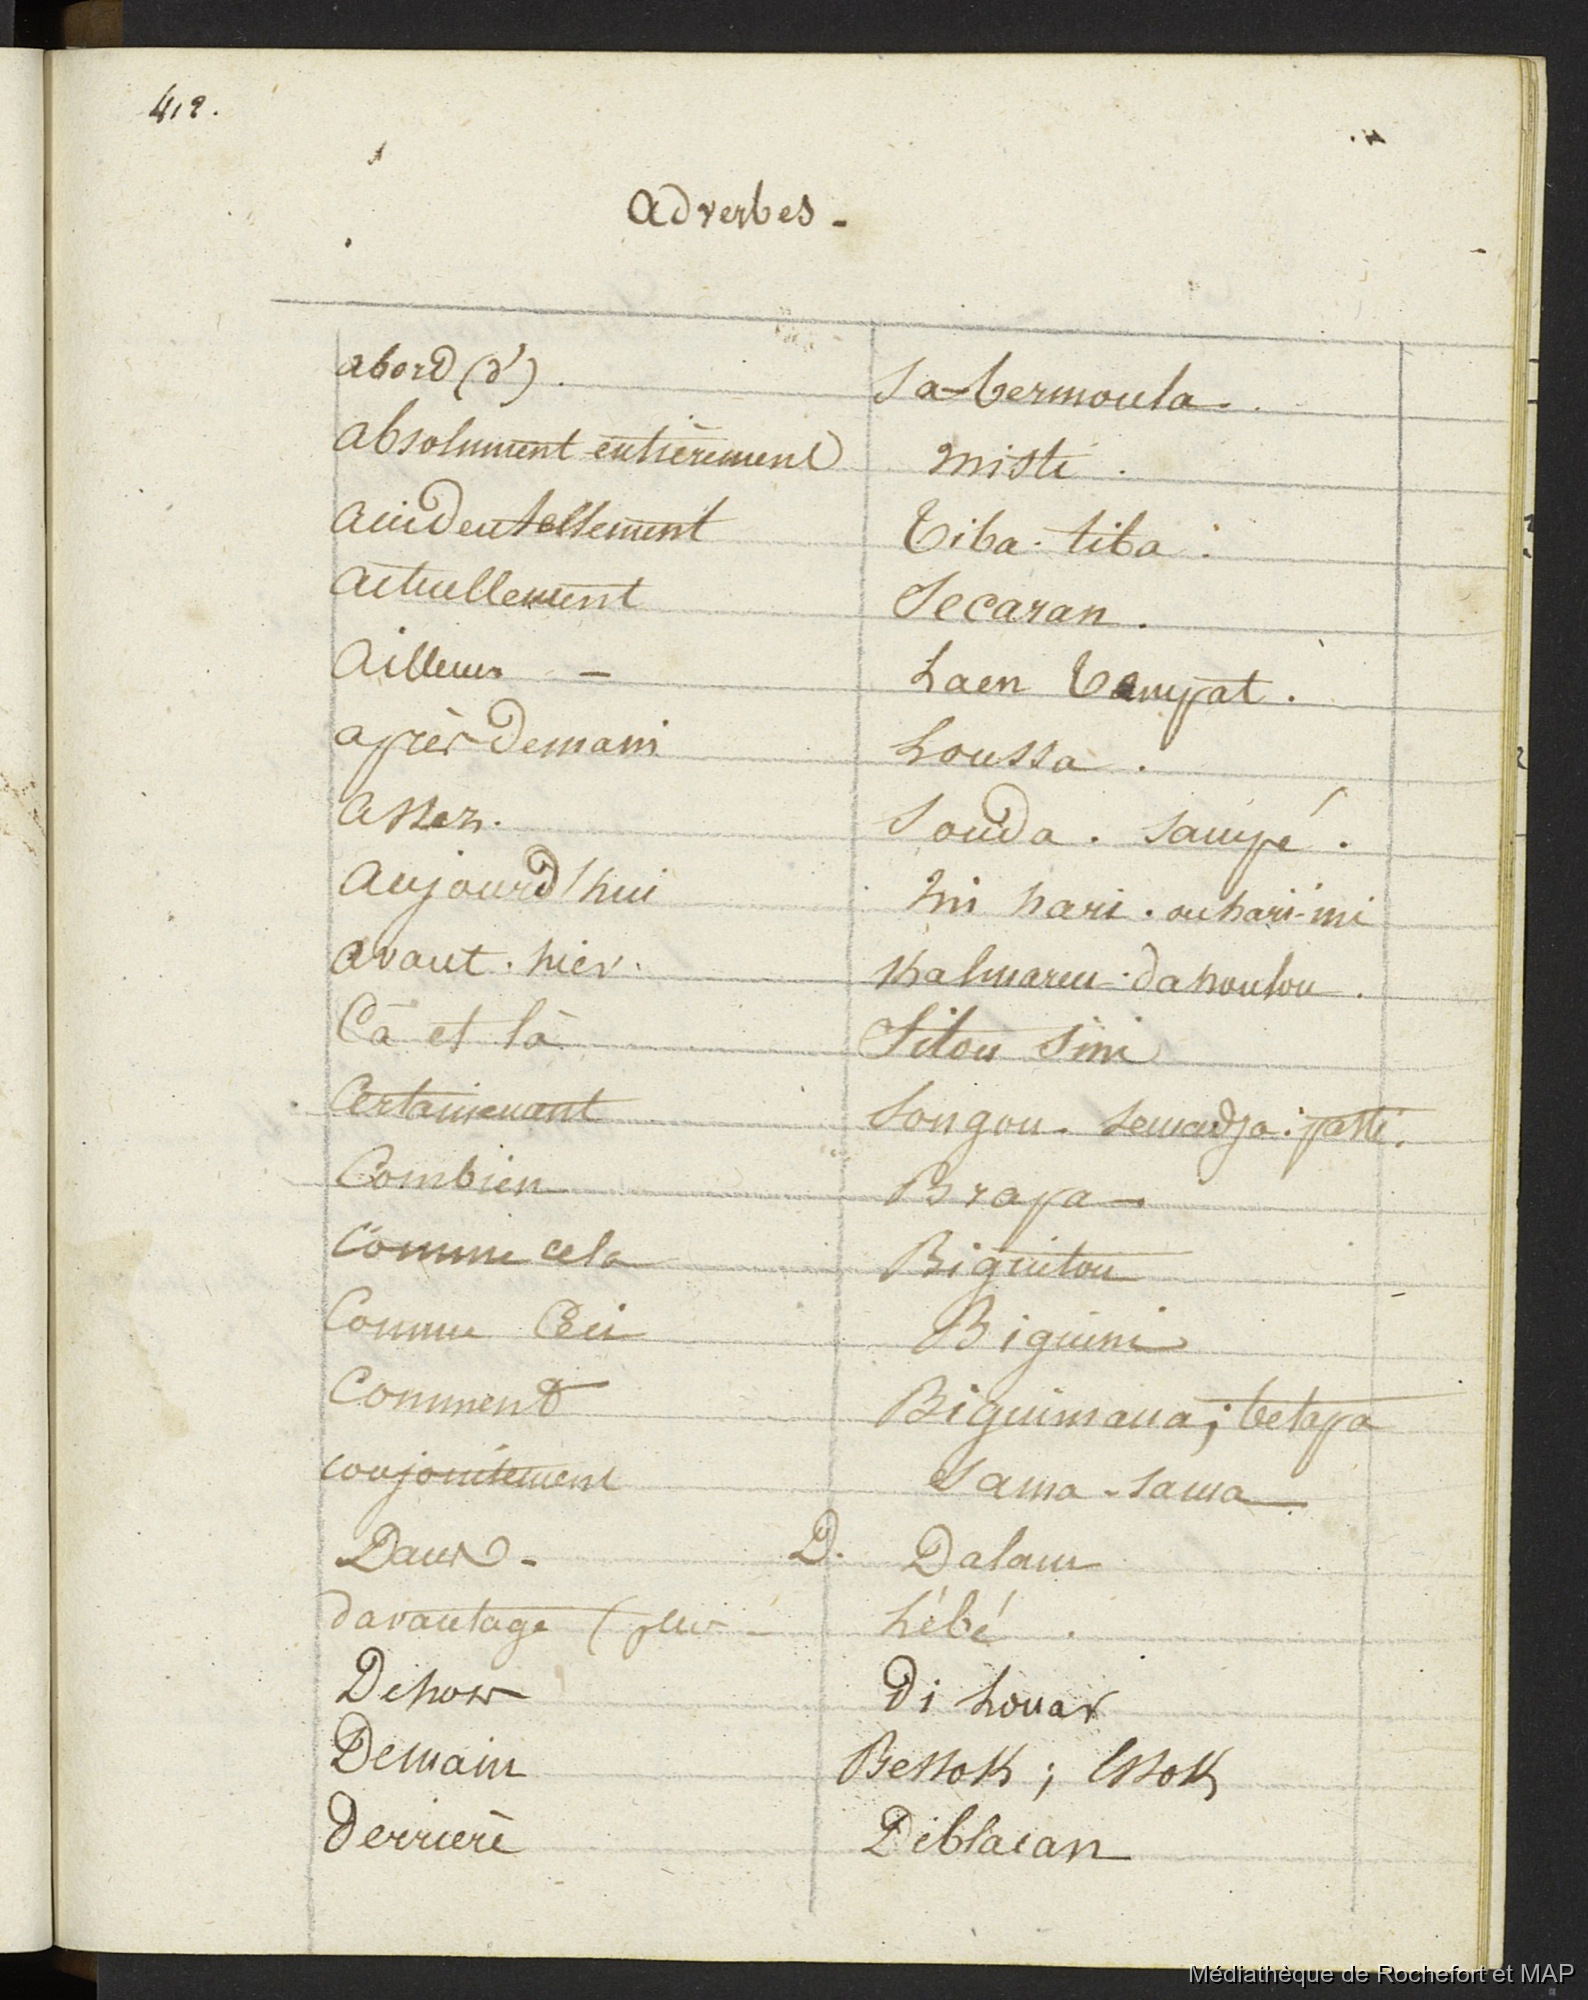 412.
Adverbes -
abord (d'). Sa-bermoula.
absolument entièrement misti.
accidentellement Tiba-tiba.
actuellement Secaran.
Ailleurs - Laen Tampat.
après demain Loussa.
assez. Souda. sampé.
Aujourd'hui hri hari. ou hari-ini
avant-hier. Kalmareu-dahoulou.
Cà et là Sitou sini
Certainement Songou. semadja: patti.
Combien Brapa-
Comme cela Biguitou
Comme Ceci Biguini
Comment Biguimana; betapa
conjointement Sama-sama
Dans - D. Dalam
davantage (plus - Lébé.
Dehors Di Louar
Demain Bessok; Essok
derrière Diblacan
Médiathèque de Rochefort et MAP